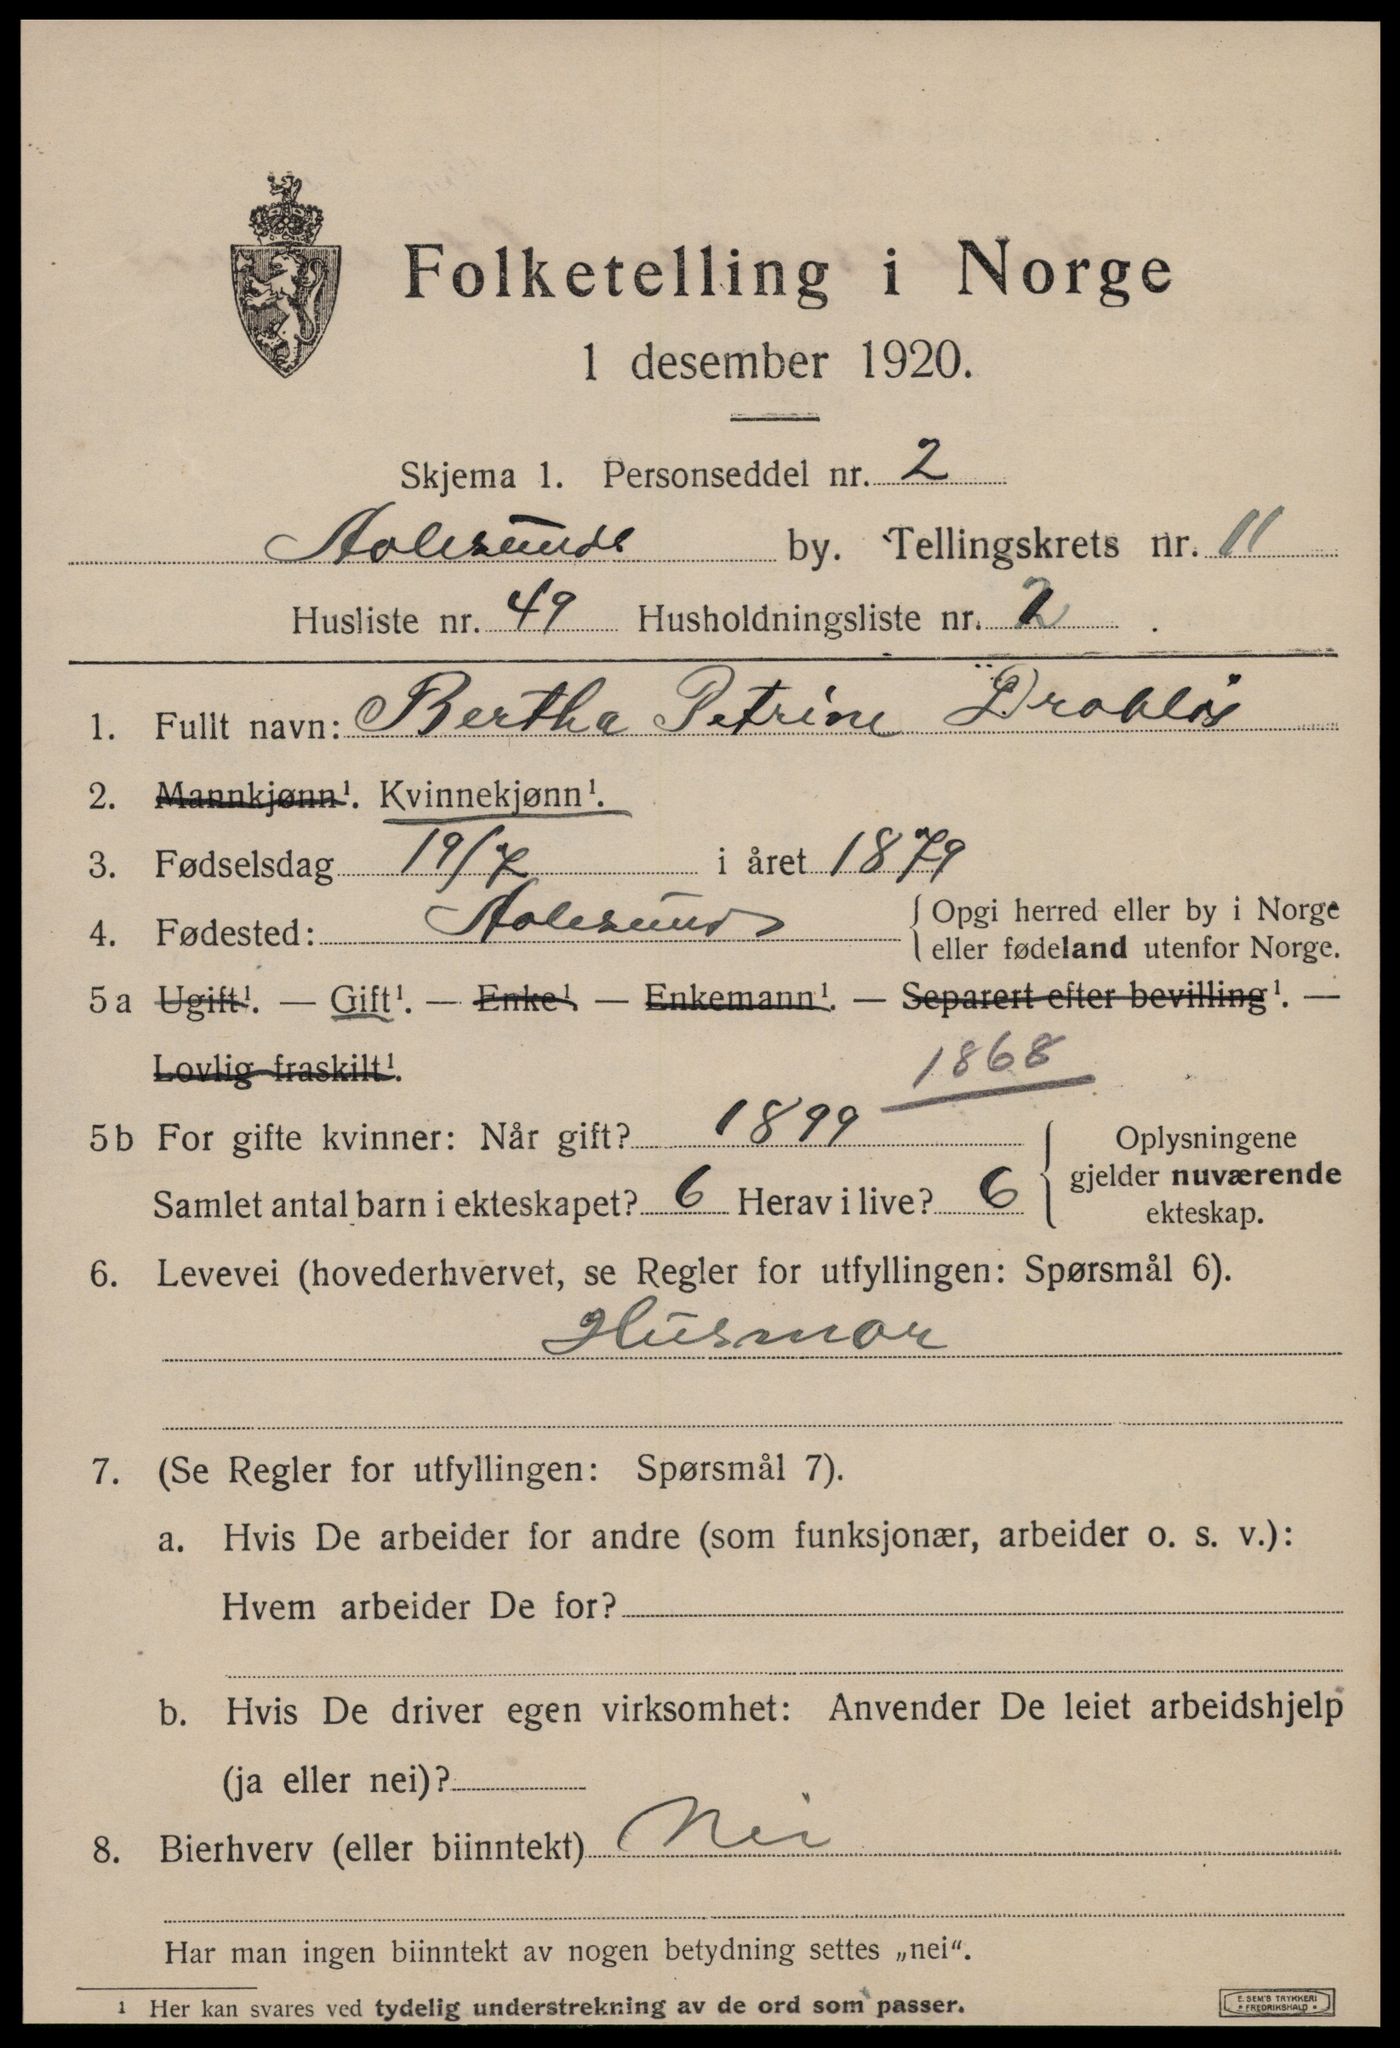 Folketelling i Norge
1 desember 1920.
Skjema 1. Personseddel nr. 2
Aalesunds by. Tellingskrets nr. 11
Husliste nr. 49 Husholdningsliste nr. 2.
1. Fullt navn: Bertha Petrine Drabløs
2. Mannkjønn¹. Kvinnekjønn¹.
3. Fødselsdag 19/7 i året 1879
4. Fødested: Aalesund { Opgi herred eller by i Norge
eller fødeland utenfor Norge.
5a Ugift¹. — Gift¹. — Enke¹. — Enkemann¹. — Separert efter bevilling¹. —
Lovlig fraskilt¹.
1868
5b For gifte kvinner: Når gift? 1899
Samlet antal barn i ekteskapet? 6 Herav i live? 6
{ Oplysningene
gjelder nuværende
ekteskap.
6. Levevei (hovederhvervet, se Regler for utfyllingen: Spørsmål 6).
Husmor
7. (Se Regler for utfyllingen: Spørsmål 7).
a. Hvis De arbeider for andre (som funksjonær, arbeider o. s. v.):
Hvem arbeider De for?
b. Hvis De driver egen virksomhet: Anvender De leiet arbeidshjelp
(ja eller nei)?
8. Bierhverv (eller biinntekt) Nei
Har man ingen biinntekt av nogen betydning settes „nei“.
¹ Her kan svares ved tydelig understrekning av de ord som passer.
E. SEM'S TRYKKERI
* FREDRIKSHALD *